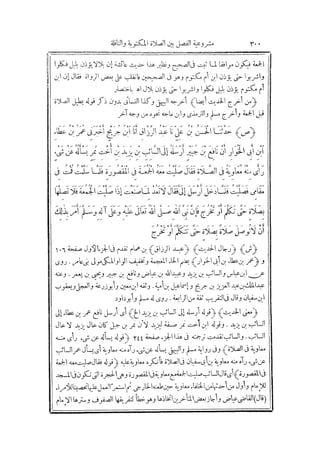 ٣٠٠ مشروعية الفصل بين الصلاة المكتوبة والنافلة
الجمعة فيكون موافقا لما ثبت فى الصحيح ونظير هذا حديث عائشة إن بلالا يؤذن بليل فكلوا
واشربوا حتى يؤذن ابن أم مكتوم وهو فى الصحيحين فانقلب على بعض الرواة فقال إن ابن
أم مكتوم يؤذن بليل فكلوا واشربوا حتى يؤذن بلال اهـ باختصار
﴿من أخرج الحديث أيضا﴾ أخرجه البيهقى وكذا النسائى بدون ذكر قوله يطيل الصلاة
قبل الجمعة وأخرج مسلم والترمذى وابن ماجه نحوه من وجه آخر
﴿ص﴾ حَدَّثَنَا الْحَسَنُ بْنُ عَلِىٍّ نَا عَبْدُ الرَّزَّاقِ أَنَا ابْنُ جُرَيْجٍ أَخْبَرَنِى عُمَرُ بْنُ عَطَاءِ
ابْنِ أَبِى الْخُوَارِ أَنَّ نَافِعَ بْنَ جُبَيْرٍ أَرْسَلَهُ إِلَى السَّائِبِ بْنِ يَزِيدَ بْنِ أُخْتِ نَمِرٍ يَسْأَلُهُ عَنْ شَىْءٍ
رَأَى مِنْهُ مُعَاوِيَةُ فِى الصَّلَاةِ فَقَالَ صَلَّيْتُ مَعَهُ الْجُمُعَةَ فِى الْمَقْصُورَةِ فَلَمَّا سَلَّمْتُ قُمْتُ فِى
مَقَامِى فَصَلَّيْتُ فَلَمَّا دَخَلَ أَرْسَلَ إِلَىَّ فَقَالَ لَا تَعُدْ لِمَا صَنَعْتَ إِذَا صَلَّيْتَ الْجُمُعَةَ فَلَا تَصِلْهَا
بِصَلَاةٍ حَتَّى تَكَلَّمَ أَوْ تَخْرُجَ فَإِنَّ نَبِىَّ اللهِ صَلَّى اللهُ تَعَالَى عَلَيْهِ وَعَلَى آلِهِ وَسَلَّمَ أَمَرَ بِذَلِكَ
أَنْ لَا تُوصَلَ صَلَاةٌ بِصَلَاةٍ حَتَّى يَتَكَلَّمَ أَوْ يَخْرُجَ
﴿ش﴾ ﴿رجال الحديث﴾ ﴿عبد الرزاق﴾ بن همام تقدم فى الجزء الأول صفحة ١٠٦
و﴿عمر بن عطاء بن أبى الخوار﴾ بضم الخاء المعجمة وتخفيف الواو المكى مولى بنى عامر. روى
عن ابن عباس والسائب بن يزيد وعبيد الله بن عياض ونافع بن جبير ويحيى بن يعمر. وعنه
عبد الملك بن عبد العزيز بن جريج وإسماعيل بن أمية. وثقه ابن معين وأبو زرعة والعجلى ويعقوب
ابن سفيان وقال فى التقريب ثقة من الرابعة. روى له مسلم وأبو داود
﴿معنى الحديث﴾ ﴿قوله أرسله إلى السائب بن يزيد الخ﴾ أى أرسل نافع عمر بن عطاء إلى
السائب بن يزيد. وقوله ابن أخت نمر صفة ليزيد لأن نمر بن جبل كان خال يزيد لا خال
السائب. والسائب تقدمت ترجمته فى هذا الجزء صفحة ٢٤٤ ﴿قوله يسأله عن شىء رأى منه
معاوية فى الصلاة﴾ وفى رواية مسلم والبيهقى يسأله عن شىء رآه منه معاوية أى يسأل عمر السائب
عن شىء رآه منه معاوية بن أبى سفيان فى الصلاة فأنكره معاوية عليه ﴿قوله فقال صليت معه الجمعة
فى المقصورة﴾ أى قال السائب صليت الجمعة مع معاوية فى المقصورة وهى الحجرة التى تكون فى المسجد
للإمام وأول من أحدثها من الخلفاء معاوية حين طعنه الخارجى ثم استمر العمل عليها تحصينا للأمراء.
﴿قال﴾ القاضى عياض وأجاز بعض المتأخرين اتخاذها وهو خطأ لتفريقها الصفوف وسترها الإمام